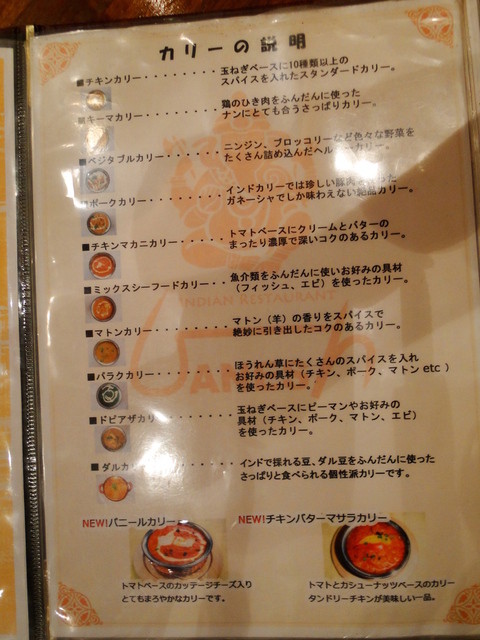 カリーの説明
■チキンカリー・・・・・・・・玉ねぎベースに10種類以上の
スパイスを入れたスタンダードカリー。
■キーマカリー・・・・・・・・鶏のひき肉をふんだんに使った
ナンにとても合うさっぱりカリー。
■ベジタブルカリー・・・・・・ニンジン、ブロッコリーなど色々な野菜を
たくさん詰め込んだヘル カリー。
■ポークカリー・・・・・・・・インドカリーでは珍しい
ガネーシャでしか味わえない絶品カリー。
■チキンマカニカリー・・・・・トマトベースにクリームとバターの
まったり濃厚で深いコクのあるカリー。
■ミックスシーフードカリー・・・魚介類をふんだんに使いお好みの具材
（フィッシュ、エビ）を使ったカリー。
INDIAN RESTAURANT
■マトンカリー・・・・・・・・マトン（羊）の香りをスパイスで
絶妙に引き出したコクのあるカリー。
■パラクカリー・・・・・・・・ほうれん草にたくさんのスパイスを入れ
お好みの具材（チキン、ポーク、マトン etc ）
を使ったカリー。
■ドピアザカリ・・・・・・・・玉ねぎベースにピーマンやお好みの
具材（チキン、ポーク、マトン、エビ）
を使ったカリー。
■ダルカ・・・・・・・・インドで採れる豆、ダル豆をふんだんに使った
さっぱりと食べられる個性派カリーです。
NEW!パニールカリー
NEW!チキンバターマサラカリー
トマトベースのカッテージチーズ入り
とてもまろやかなカリーです。
トマトとカシューナッツベースのカリー
タンドリーチキンが美味しい一品。